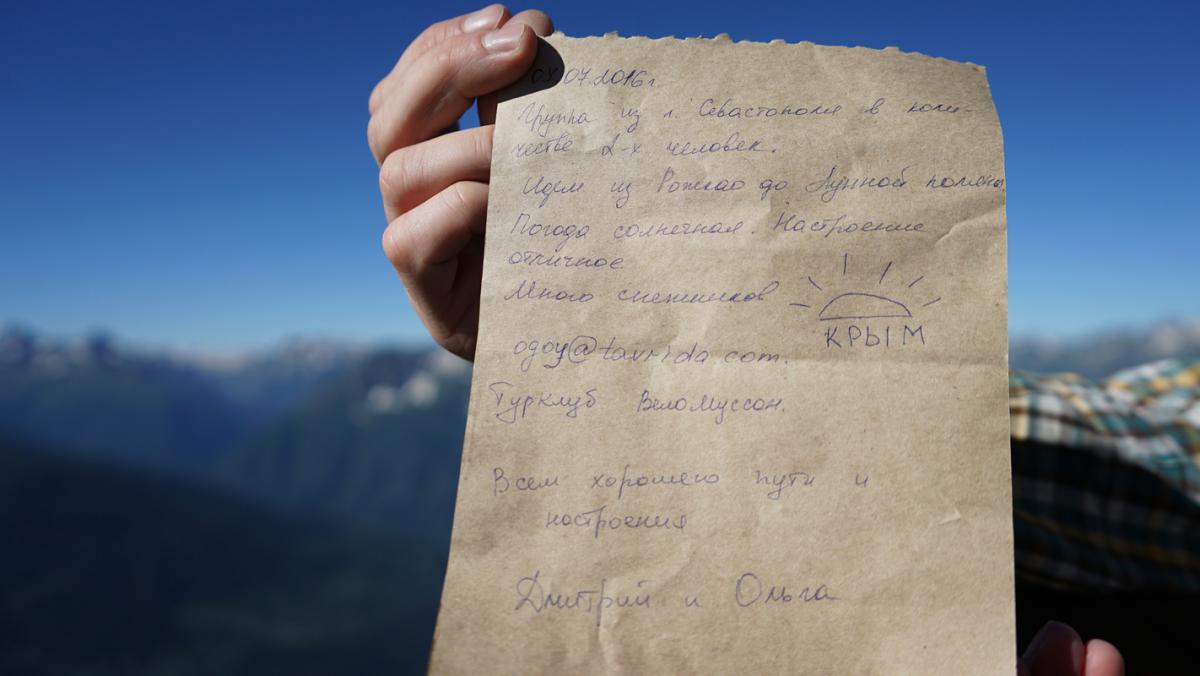 07.2016г
Группа из г. Севастополя в коли-
честве 2-х человек.
Идем из Рожкао до Лунной поляны
Погода солнечная. Настроение
отличное.
Много снежников
КРЫМ
ogoy@tavrida.com.
Турклуб ВелоМуссон.
Всем хорошего пути и
настроения
Дмитрий и Ольга